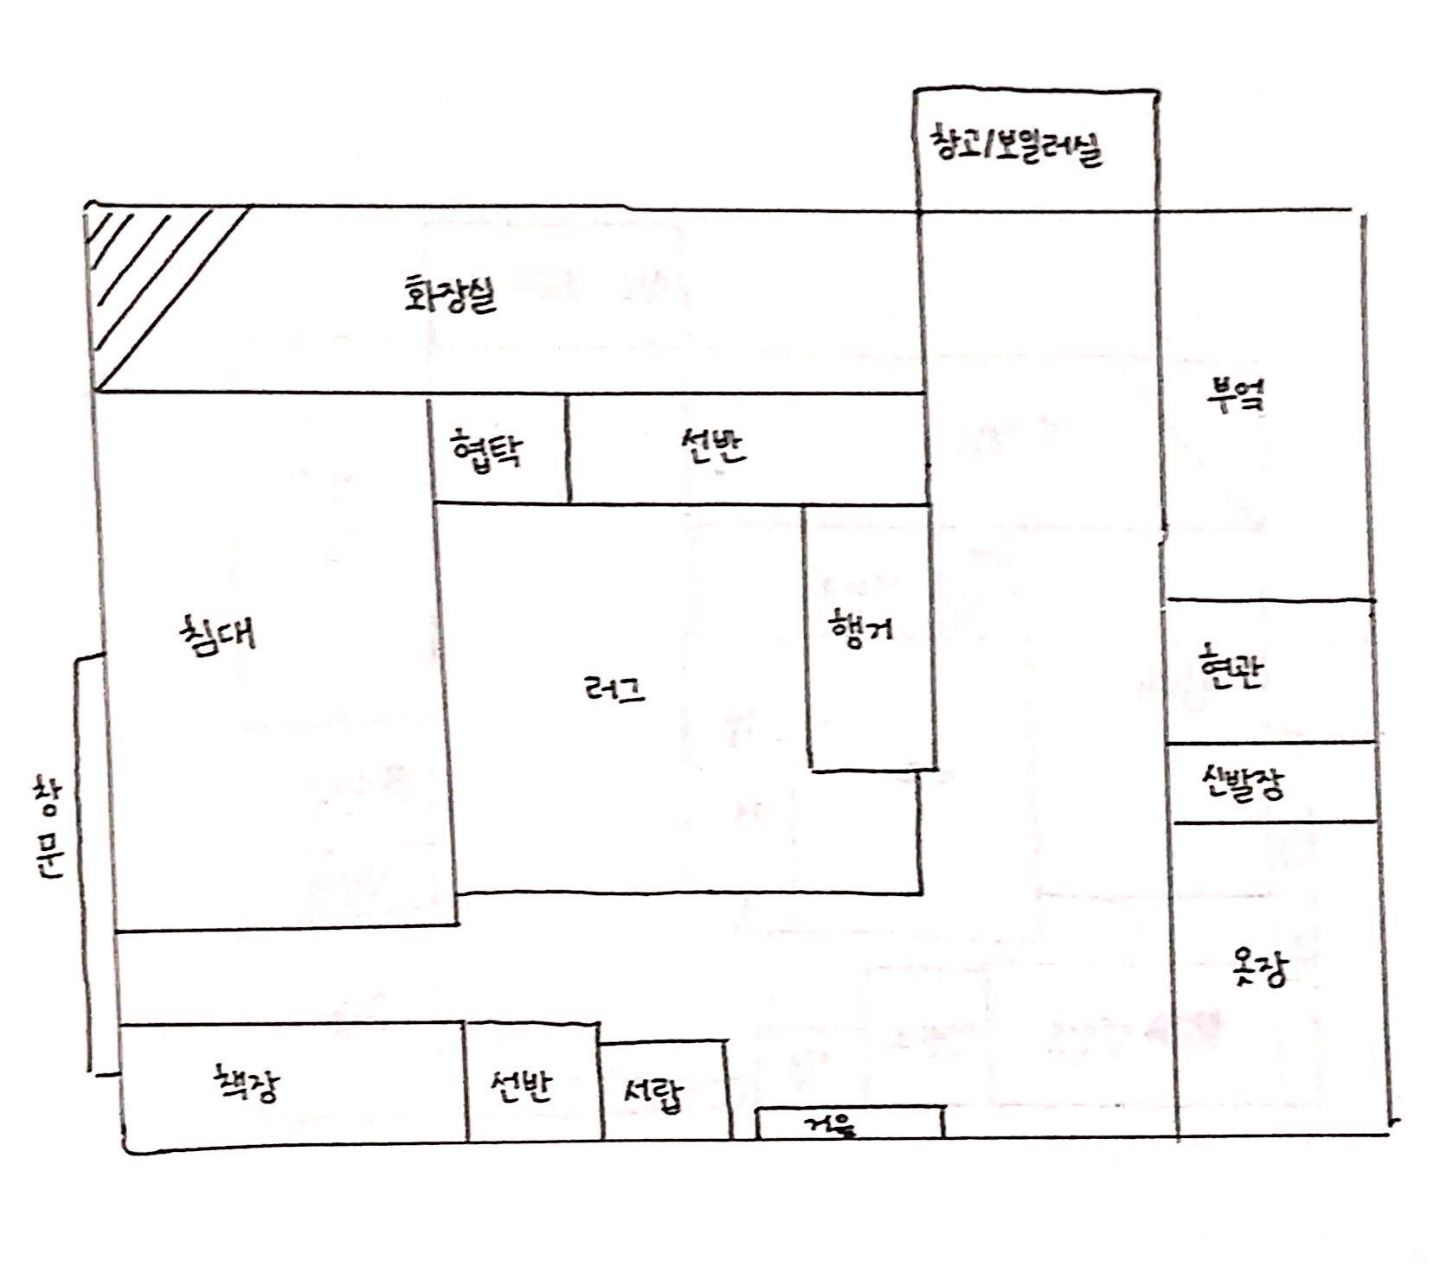 창고/보일러실
화장실
부엌
협탁
선반
침대
행거
현관
러그
신발장
창문
옷장
책장
선반
서랍
거울